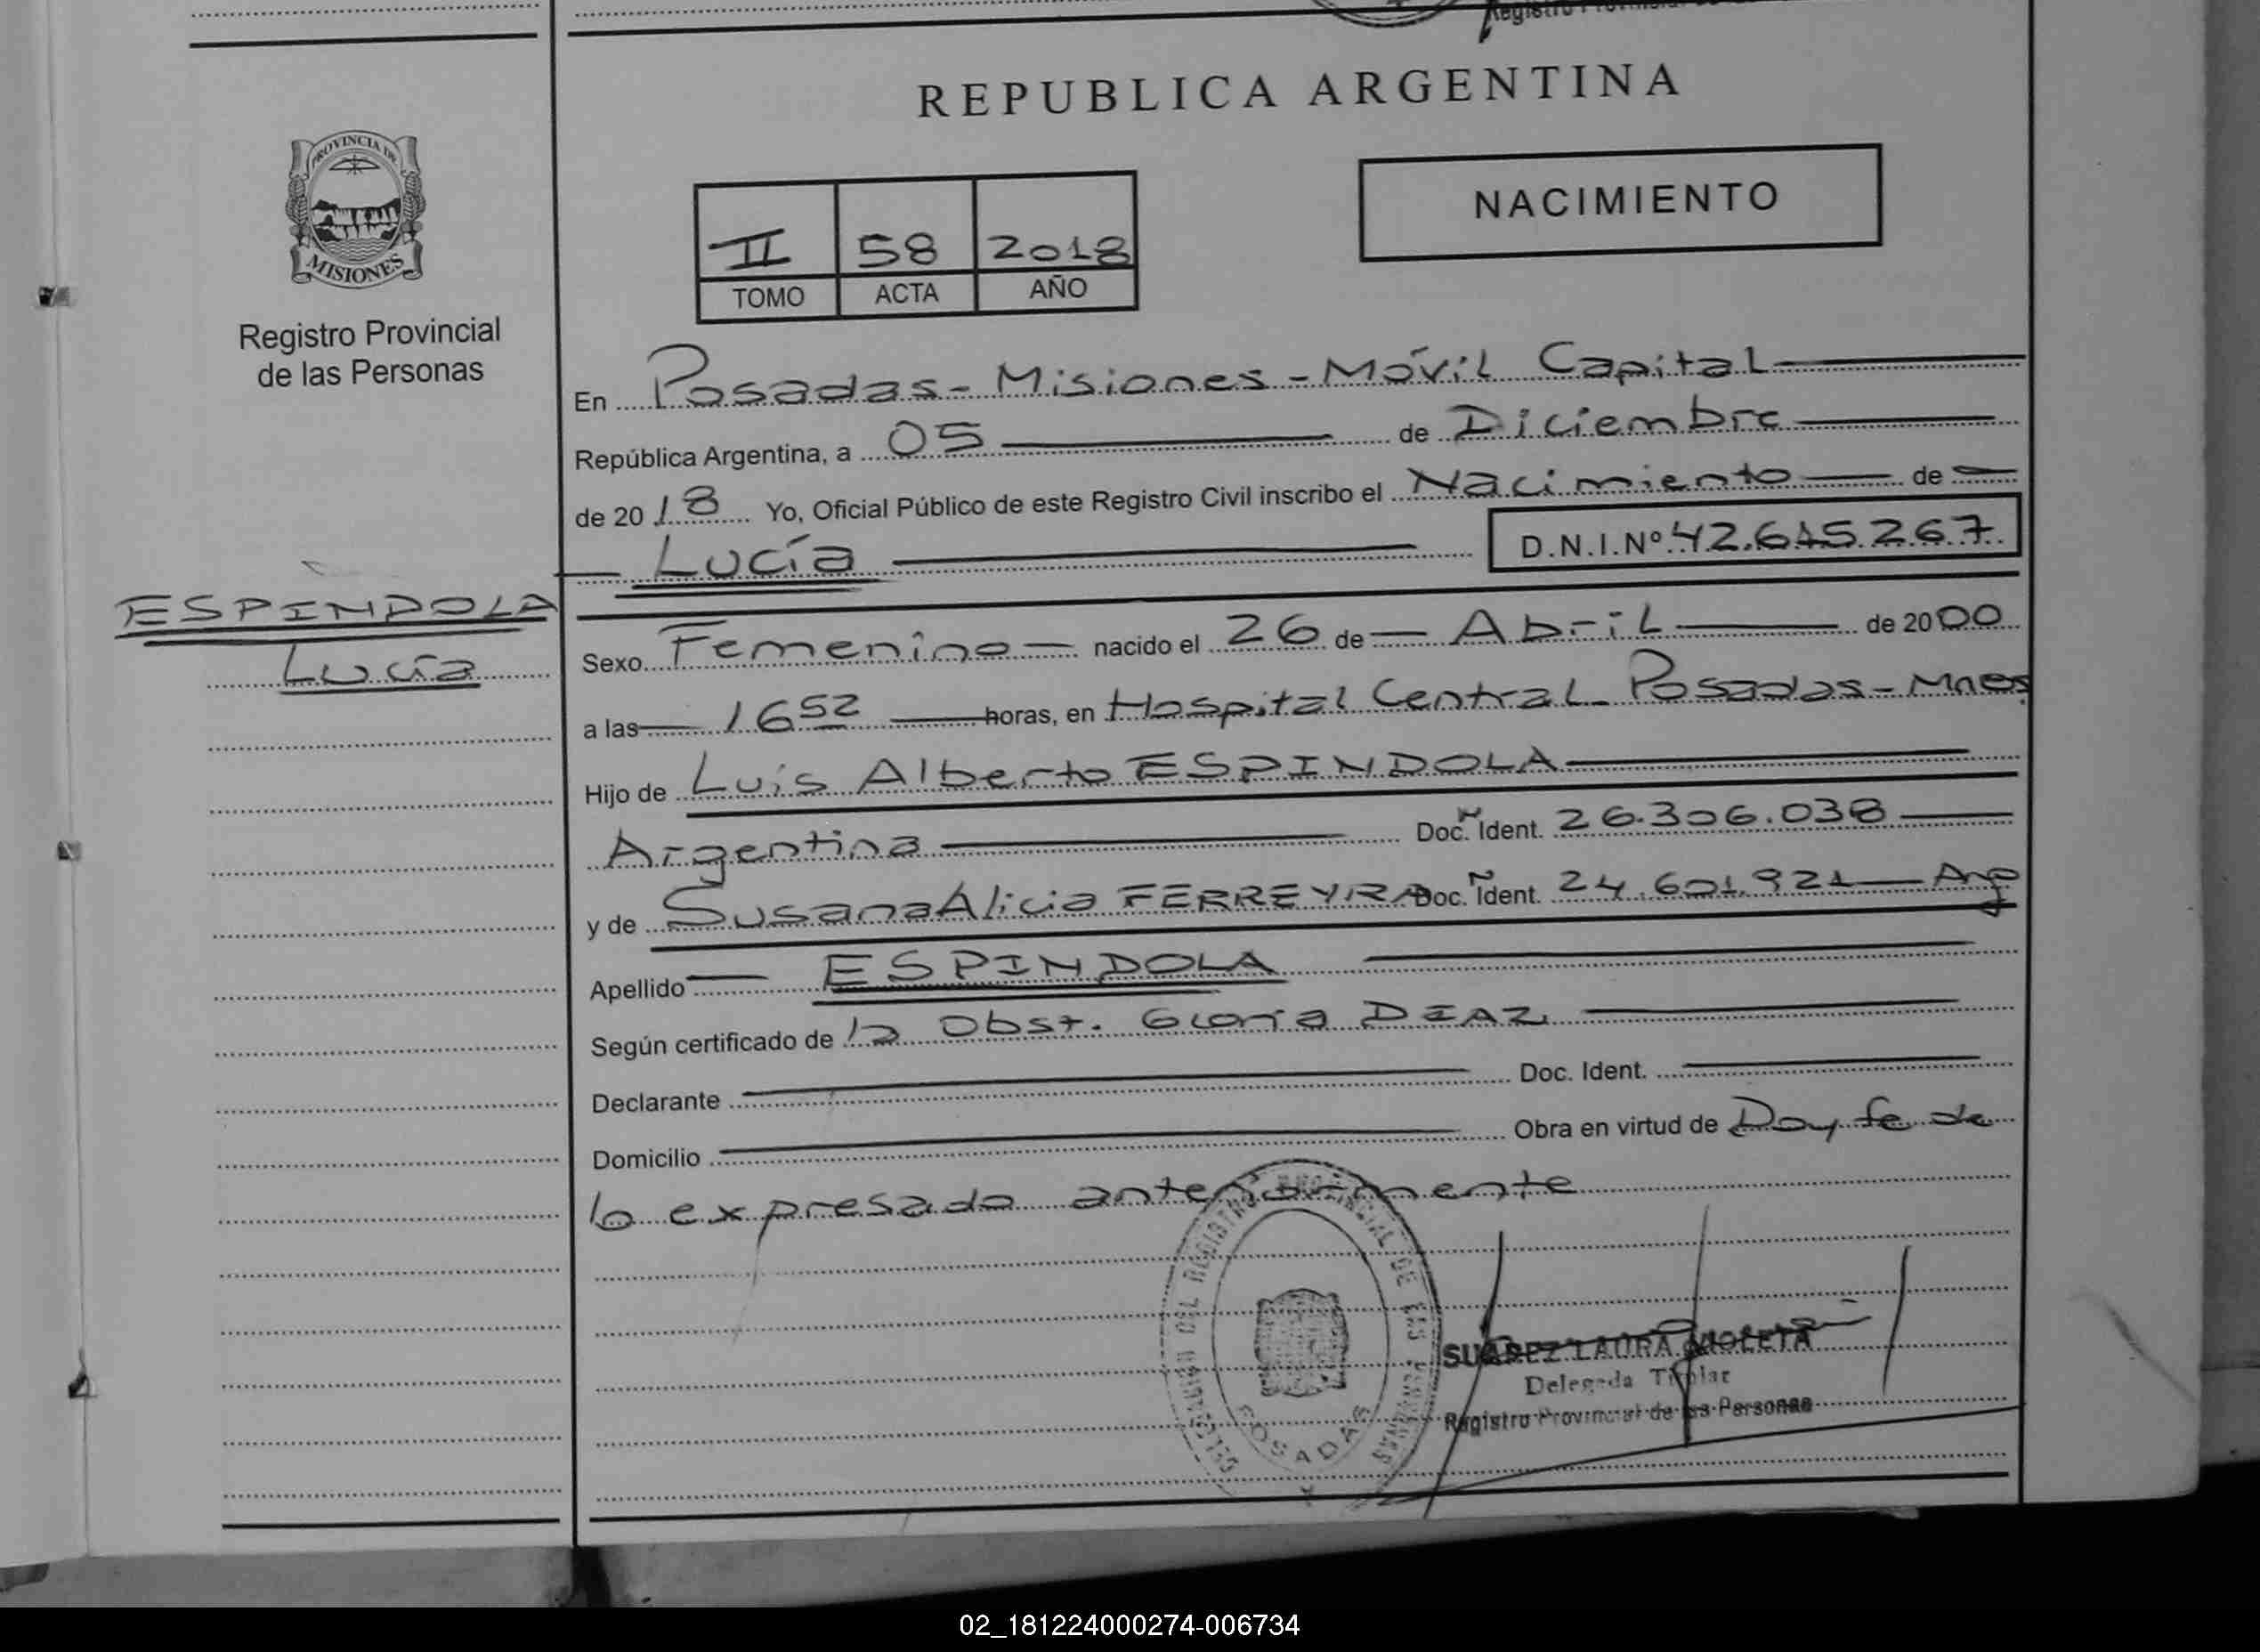 Registro Provincial
REPUBLICA ARGENTINA
PROVINCIA DE
MISIONES
Registro Provincial
de las Personas
NACIMIENTO
II 58 2018
TOMO ACTA AÑO
En Posadas - Misiones - Móvil Capital
República Argentina, a 05 de Diciembre
de 2018 Yo, Oficial Público de este Registro Civil inscribo el Nacimiento de
Lucía D.N.I.Nº 42.615.267
ESPINDOLA
Lucía
Sexo Femenino nacido el 26 de Abril de 2000
a las 16 52 horas, en Hospital Central - Posadas - Mnes
Hijo de Luis Alberto ESPINDOLA
Argentina Doc. Ident. 26.306.038
y de Susana Alicia FERREYRA Doc. Ident. 24.601.921 Arg
Apellido ESPINDOLA
Según certificado de la Obst. Gloria DIAZ
Declarante Doc. Ident.
Domicilio Obra en virtud de Doy fe de
lo expresado anteriormente
DEL REGISTRO PROVINCIAL DE LAS PERSONAS
POSADAS
SUAREZ LAURA VIOLETA
Delegada Titular
Registro Provincial de las Personas
02_181224000274-006734